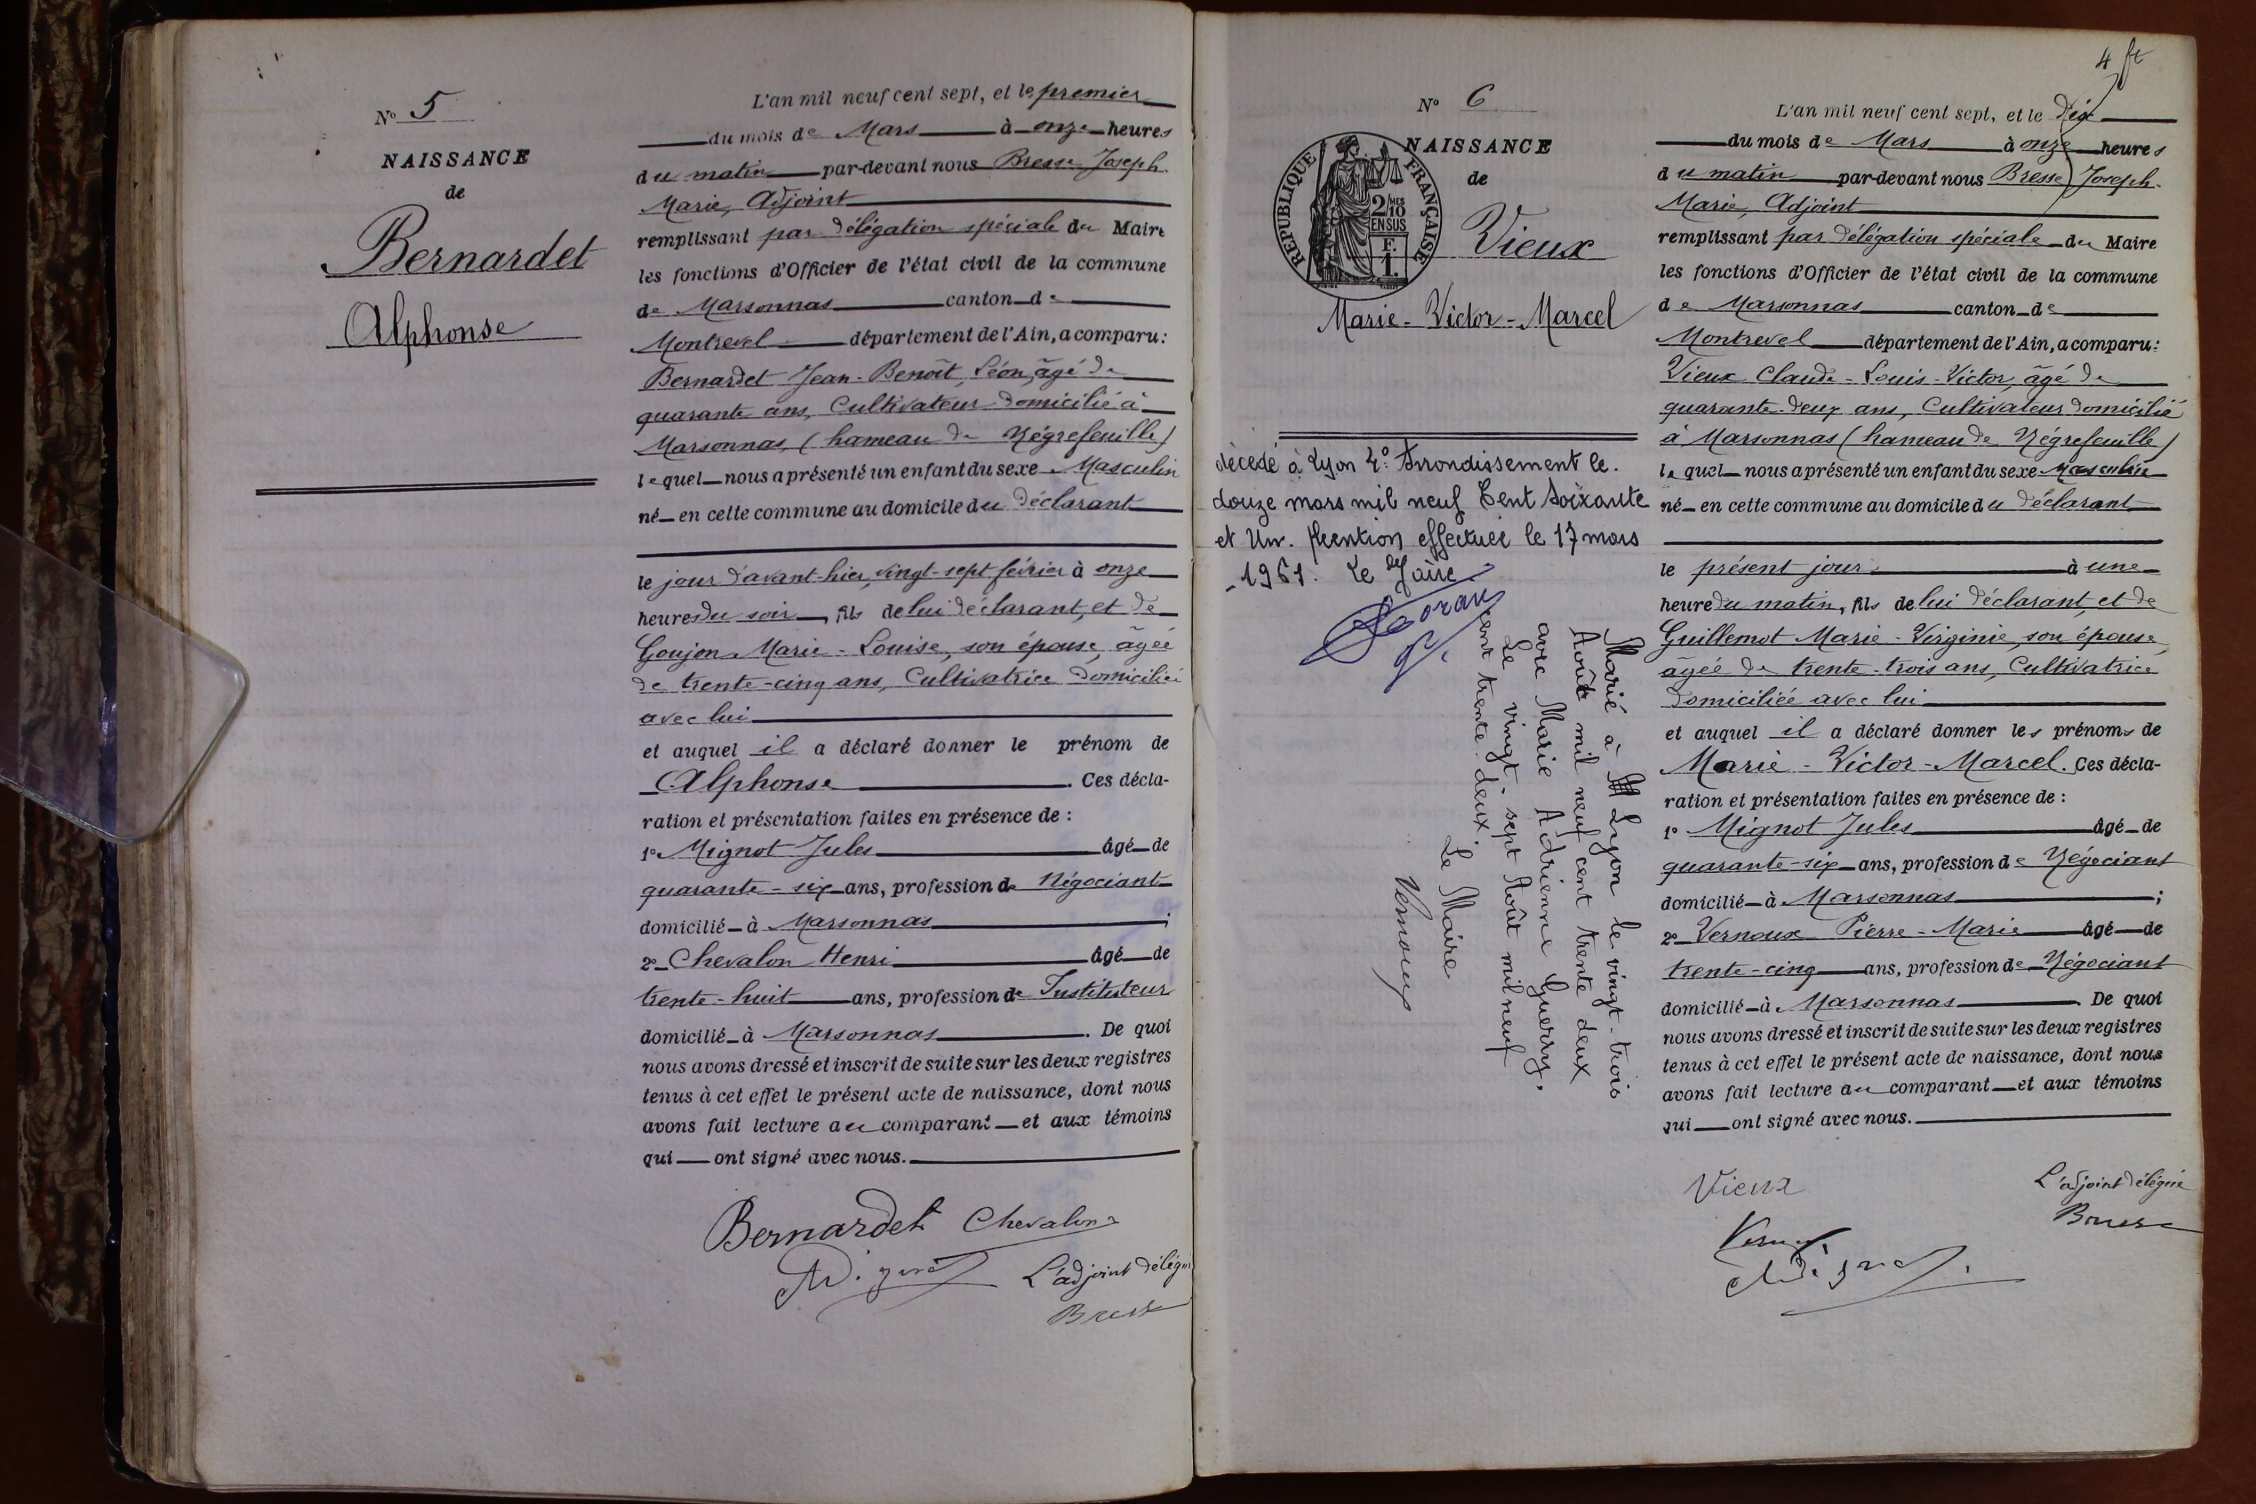 N° 5
NAISSANCE
de
Bernardet
Alphonse
L'an mil neuf cent sept, et le premier
du mois de Mars à onze heures
du matin par-devant nous Bresse Joseph-
Marie, Adjoint
remplissant par délégation spéciale du Maire
les fonctions d'Officier de l'état civil de la commune
de Marsonnas canton de
Montrevel département de l'Ain, a comparu:
Bernardet Jean-Benoît, Léon, âgé de
quarante ans, Cultivateur domicilié à
Marsonnas, (hameau de Négrefeuille)
lequel nous a présenté un enfant du sexe Masculin
né en cette commune au domicile du déclarant
le jour d'avant-hier, vingt-sept février à onze
heures du soir, fils de lui déclarant, et de
Goujon Marie-Louise, son épouse, âgée
de trente-cinq ans, Cultivatrice domiciliée
avec lui
et auquel il a déclaré donner le prénom de
Alphonse. Ces décla-
ration et présentation faites en présence de :
1° Mignot Jules âgé de
quarante-six ans, profession de Négociant
domicilié à Marsonnas ;
2° Chevalon Henri âgé de
trente-huit ans, profession de Instituteur
domicilié à Marsonnas. De quoi
nous avons dressé et inscrit de suite sur les deux registres
tenus à cet effet le présent acte de naissance, dont nous
avons fait lecture au comparant et aux témoins
qui ont signé avec nous.
Bernardet Chevalon
L'adjoint délégué
Bresse
4
N° 6
NAISSANCE
de
RÉPUBLIQUE FRANÇAISE
2/10 MES
EN SUS
F.
1.
Vieux
Marie-Victor-Marcel
décédé à Lyon 4° Arrondissement le
douze mars mil neuf Cent Soixante
et Un. Mention effectuée le 17 mars
1961. Le Maire
Marié à Lyon le vingt-trois
Août mil neuf cent trente deux
avec Marie Adrienne Guerry.
Le vingt-sept Août mil neuf
cent trente-deux.
Le Maire
Vernoux
L'an mil neuf cent sept, et le Dix
du mois de Mars à onze heures
du matin par-devant nous Bresse Joseph-
Marie, Adjoint
remplissant par délégation spéciale du Maire
les fonctions d'Officier de l'état civil de la commune
de Marsonnas canton de
Montrevel département de l'Ain, a comparu:
Vieux Claude-Louis-Victor, âgé de
quarante-deux ans, Cultivateur domicilié
à Marsonnas (hameau de Négrefeuille)
lequel nous a présenté un enfant du sexe Masculin
né en cette commune au domicile du déclarant
le présent jour à une
heure du matin, fils de lui déclarant, et de
Guillemot Marie-Virginie, son épouse,
âgée de trente-trois ans, Cultivatrice
domiciliée avec lui
et auquel il a déclaré donner les prénoms de
Marie-Victor-Marcel. Ces décla-
ration et présentation faites en présence de :
1° Mignot Jules âgé de
quarante-six ans, profession de Négociant
domicilié à Marsonnas ;
2° Vernoux Pierre-Marie âgé de
trente-cinq ans, profession de Négociant
domicilié à Marsonnas. De quoi
nous avons dressé et inscrit de suite sur les deux registres
tenus à cet effet le présent acte de naissance, dont nous
avons fait lecture au comparant et aux témoins
qui ont signé avec nous.
Vieux
L'adjoint délégué
Bresse